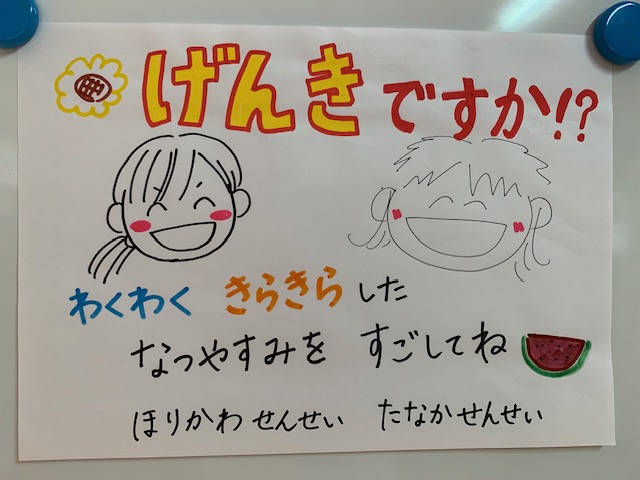 げんきですか!?
わくわく きらきらした
なつやすみを すごしてね
ほりかわせんせい たなかせんせい